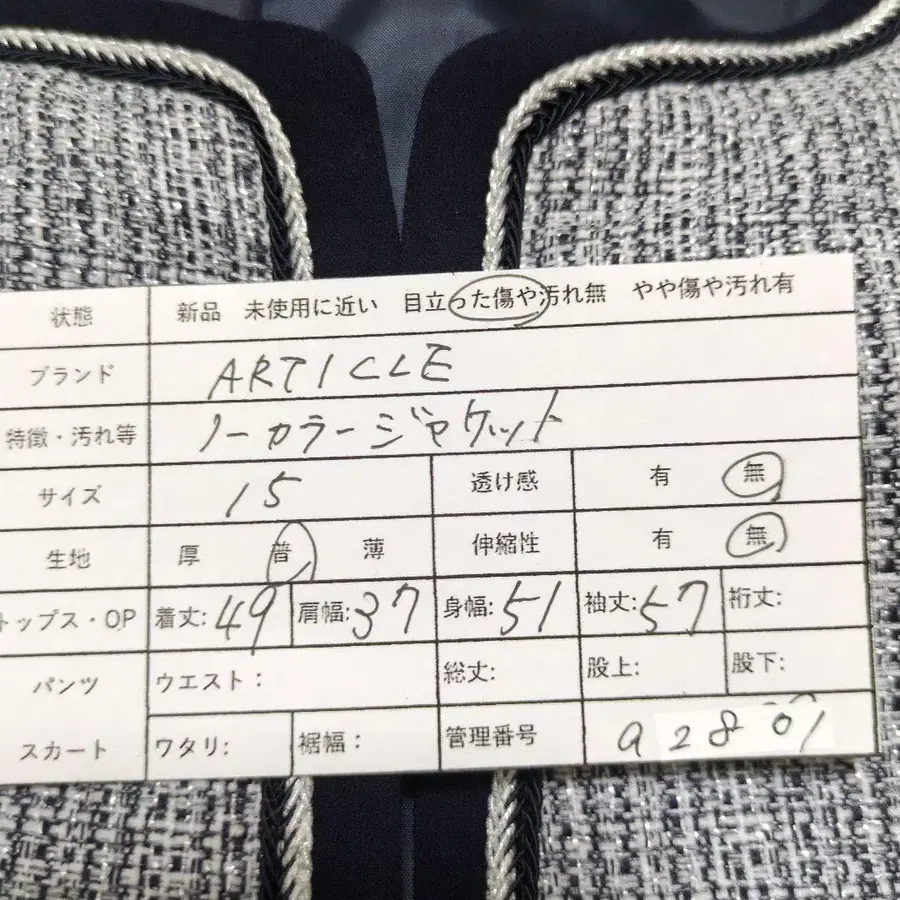 状態 新品 未使用に近い 目立った傷や汚れ無 やや傷や汚れ有
ブランド ARTICLE
特徴・汚れ等 ノーカラージャケット
サイズ 15 透け感 有 無
生地 厚 普 薄 伸縮性 有 無
トップス・OP 着丈:49 肩幅:37 身幅:51 袖丈:57 裄丈:
パンツ ウエスト: 総丈: 股上: 股下:
スカート ワタリ: 裾幅: 管理番号 a28801